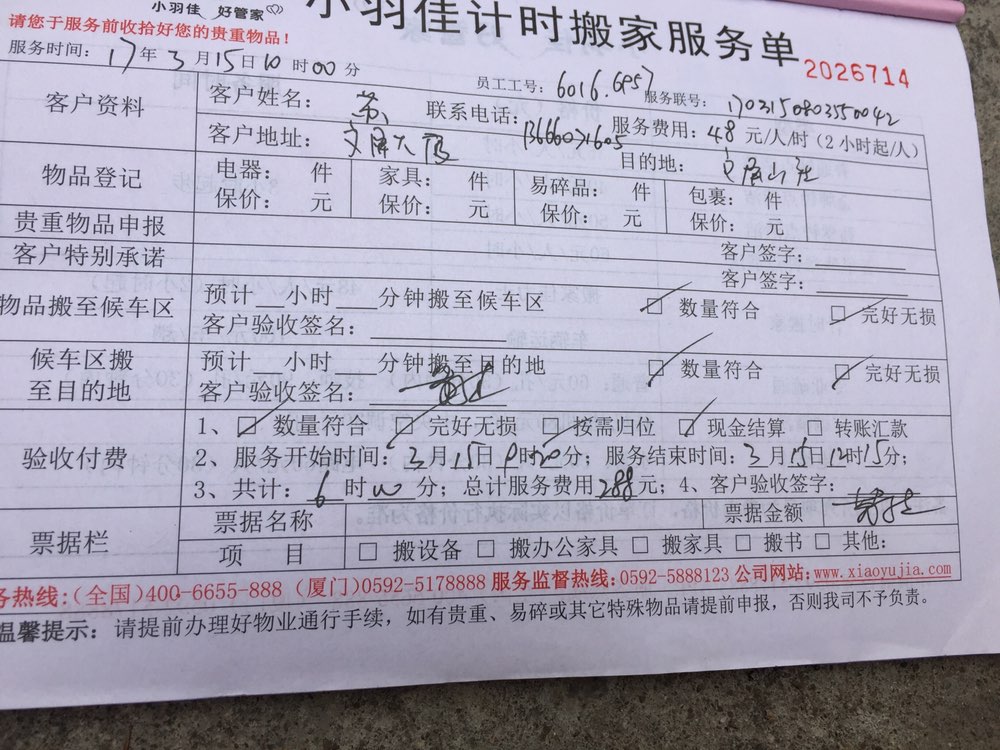 小羽佳 好管家
小羽佳计时搬家服务单
请您于服务前收拾好您的贵重物品!
2026714
服务时间: 17年3月15日10时00分
员工工号: 6016.6957 服务联号: 1703150803550042
客户资料
客户姓名: 苏 联系电话: 13666071605 服务费用: 48元/人/时(2小时起/人)
客户地址: 目的地:
物品登记
电器: 件 家具: 件 易碎品: 件 包裹: 件
保价: 元 保价: 元 保价: 元 保价: 元
贵重物品申报 客户签字:
客户特别承诺 客户签字:
物品搬至候车区
预计 小时 分钟搬至候车区 ☑ 数量符合 ☑ 完好无损
客户验收签名:
候车区搬
至目的地
预计 小时 分钟搬至目的地 ☑ 数量符合 ☑ 完好无损
客户验收签名:
验收付费
1、☑ 数量符合 ☑ 完好无损 ☑ 按需归位 ☑ 现金结算 □ 转账汇款
2、服务开始时间: 3月15日9时20分; 服务结束时间: 3月15日12时15分;
3、共计: 6时00分; 总计服务费用288元; 4、客户验收签字:
票据栏
票据名称 票据金额
项 目 □ 搬设备 □ 搬办公家具 □ 搬家具 □ 搬书 □ 其他:
务热线:(全国)400-6655-888 (厦门)0592-5178888 服务监督热线:0592-5888123 公司网站:www.xiaoyujia.com
温馨提示: 请提前办理好物业通行手续，如有贵重、易碎或其它特殊物品请提前申报，否则我司不予负责。